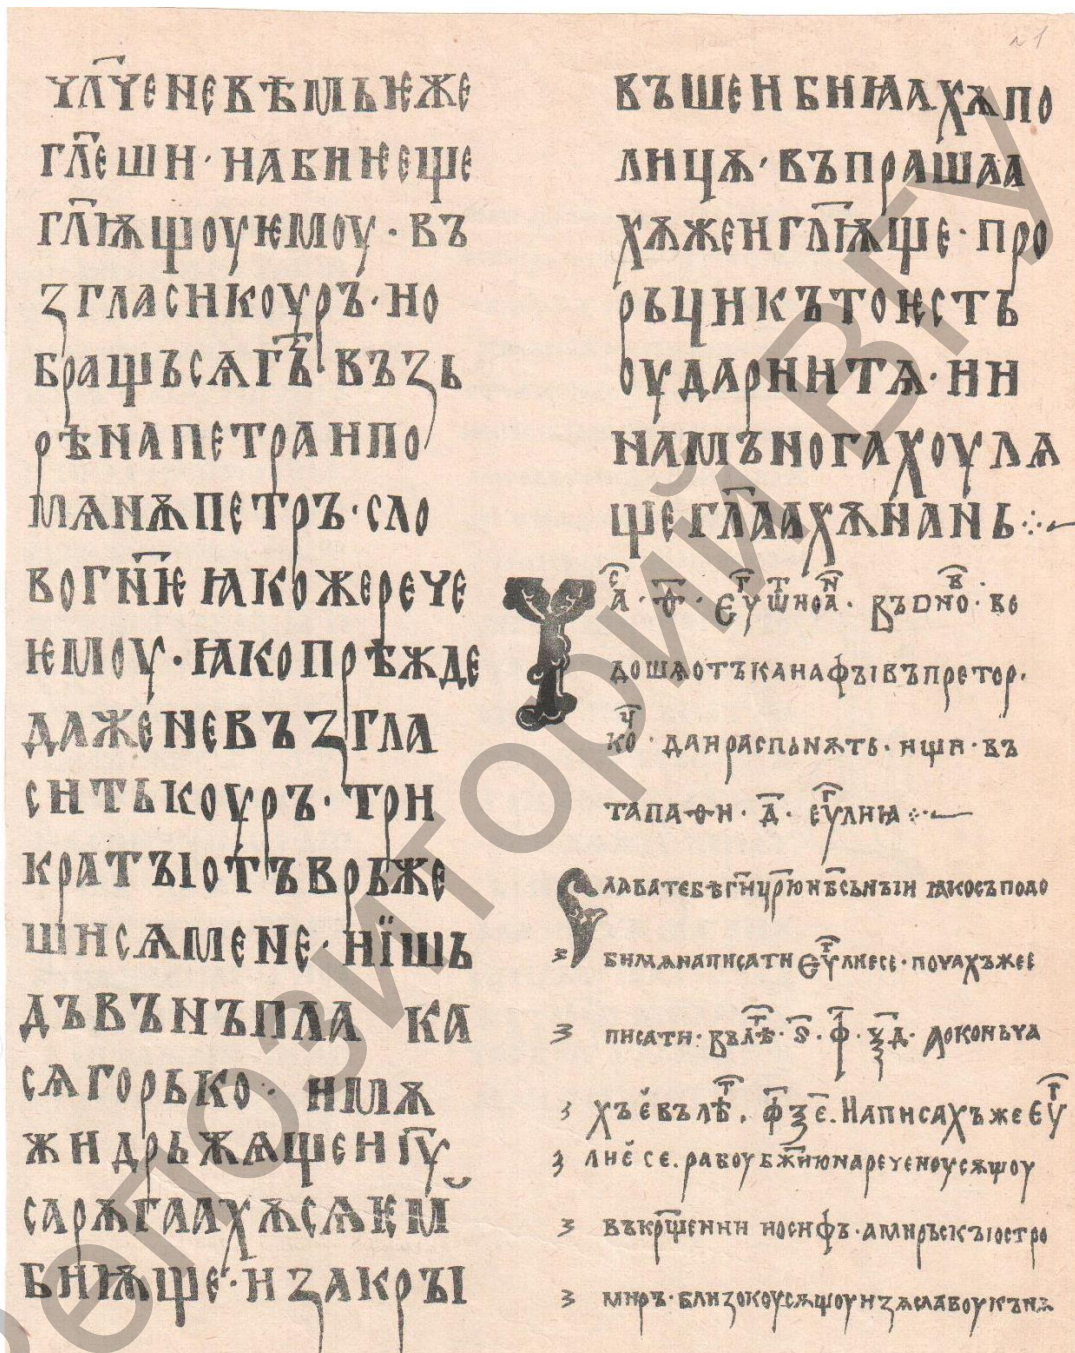 ѴЛ҃ѴЕНЕВѢМЬѤЖЕ
ГЛ҃ЕШИ·НАБИѤЕЩЕ
ГЛ҃ѬЩОУѤМОУ·ВЪ
ЗГЛАСИКОУРЪ·ИО
БРАЩЬСѦГЪ҃·ВЪЗЬ
РѢНАПЕТРАИПО
МѦНѪПЕТРЪ·СЛО
ВОГН҃Ѥ ꙖКОЖЕРЕЧЕ
ѤМОУ·ꙖКОПРѢЖДЕ
ДАЖЕНЕВЪЗГЛА
СИТЬКОУРЪ·ТРИ
КРАТЪІОТЪВРЬЖЕ
ШИСѦМЕНЕ·ИЇШЬ
ДЪВЪНЪПЛА КА
СѦГОРЬКО· ИМѪ
ЖИДРЬЖѦЩЕИІ҃У
САРѪГААХѪСѦѤМ
БИѬЩЕ·ИЗАКРЪІ
ВЪШЕИБИꙖАХѪПО
ЛИЦѪ·ВЪПРАШАА
ХѪЖЕИГЛ҃ѬЩЕ·ПРО
РЬЦИКЪТОѤСТЬ
ОУДАРИИТѦ·ИИ
НАМЪНОГАХОУЛѦ
ЩЕГЛ҃ААХѪНАНЬ
ДОШѦОТЪКАИАФЪІВЪПРЕТОР.
КО· ДАИРАСПЬНѪТЬ·ИЩИ·ВЪ
ТАПАѲИ·Д҃·ЕУ҃ЛИꙖ
СЛАВАТЕБѢГ҃ИЦР҃ЮНБ҃СЬНЪІИ ꙖКОСЪПОДО
З БИМѦНАПИСАТИЕУ҃ЛИЕСЕ·ПОЧАХЪЖЕЕ
З ПИСАТИ·ВЪЛѢ҃·Ѕ҃·Ф҃·Ѯ҃Д·АОКОНЬЧА
З ХЪЕВЪЛѢ҃.Ф҃ЗЕ҃.НАПИСАХЪЖЕЕУ҃
З ЛИЕ СЕ.РАБОУБЖ҃ИЮНАРЕЧЕНОУСѪЩОУ
З ВЪКРЩ҃ЕНИИ ИОСИФЪ·АМИРЬСКЪІОСТРО
З МИРЪ·БЛИЗОКОУСѪЩОУИЗѦСЛАВОУКЪНѦ